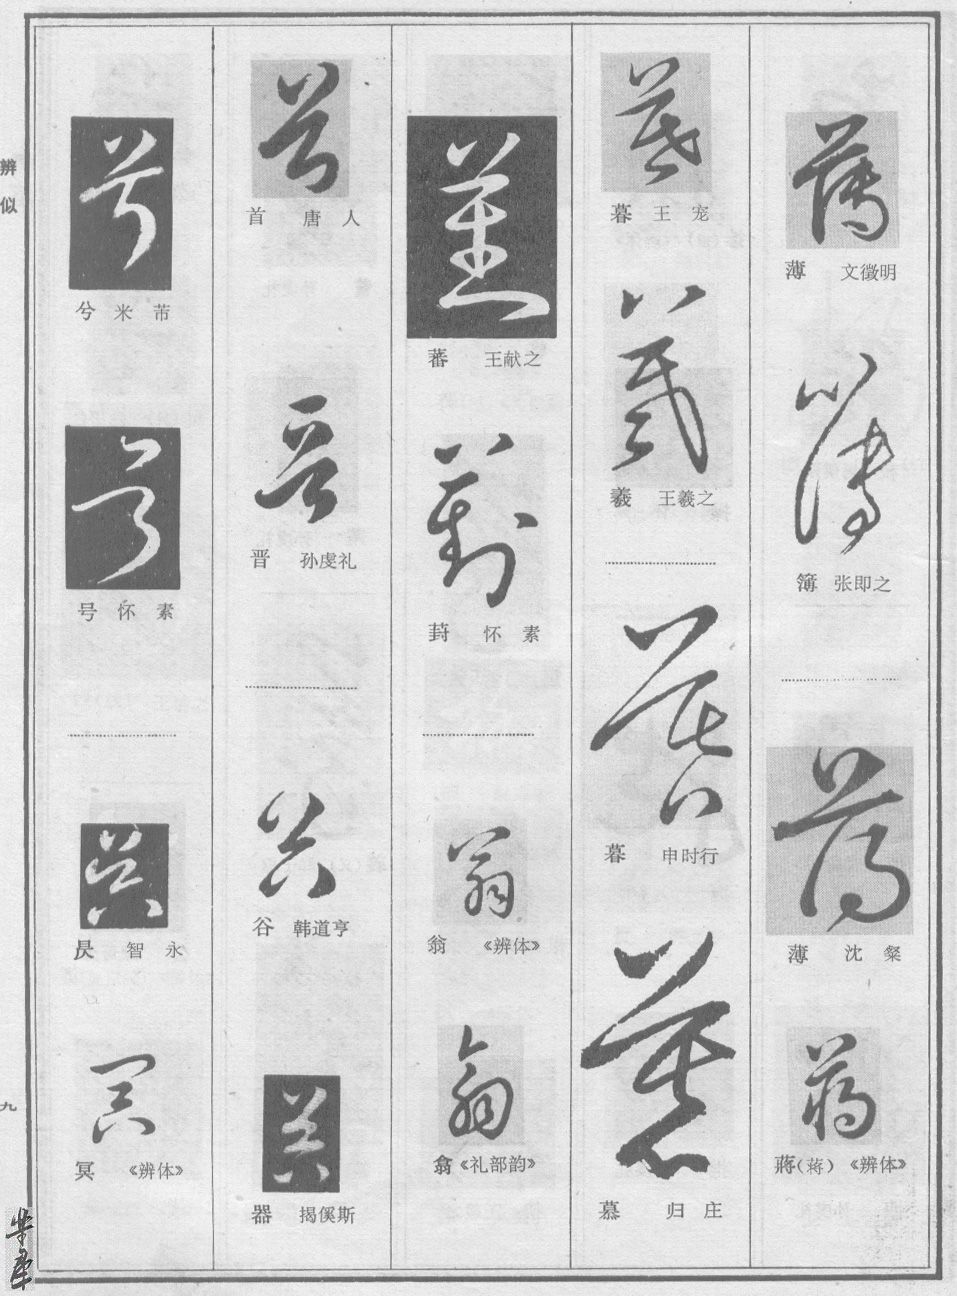 辨似
薄 文徵明
簿 张即之
薄 沈粲
蔣(蒋) 《辨体》
暮 王宠
羲 王羲之
暮 申时行
慕 归庄
蕃 王献之
葑 怀素
翁 《辨体》
翕 《礼部韵》
首 唐人
晋 孙虔礼
谷 韩道亨
器 揭傒斯
兮 米芾
号 怀素
昃 智永
冥 《辨体》
九